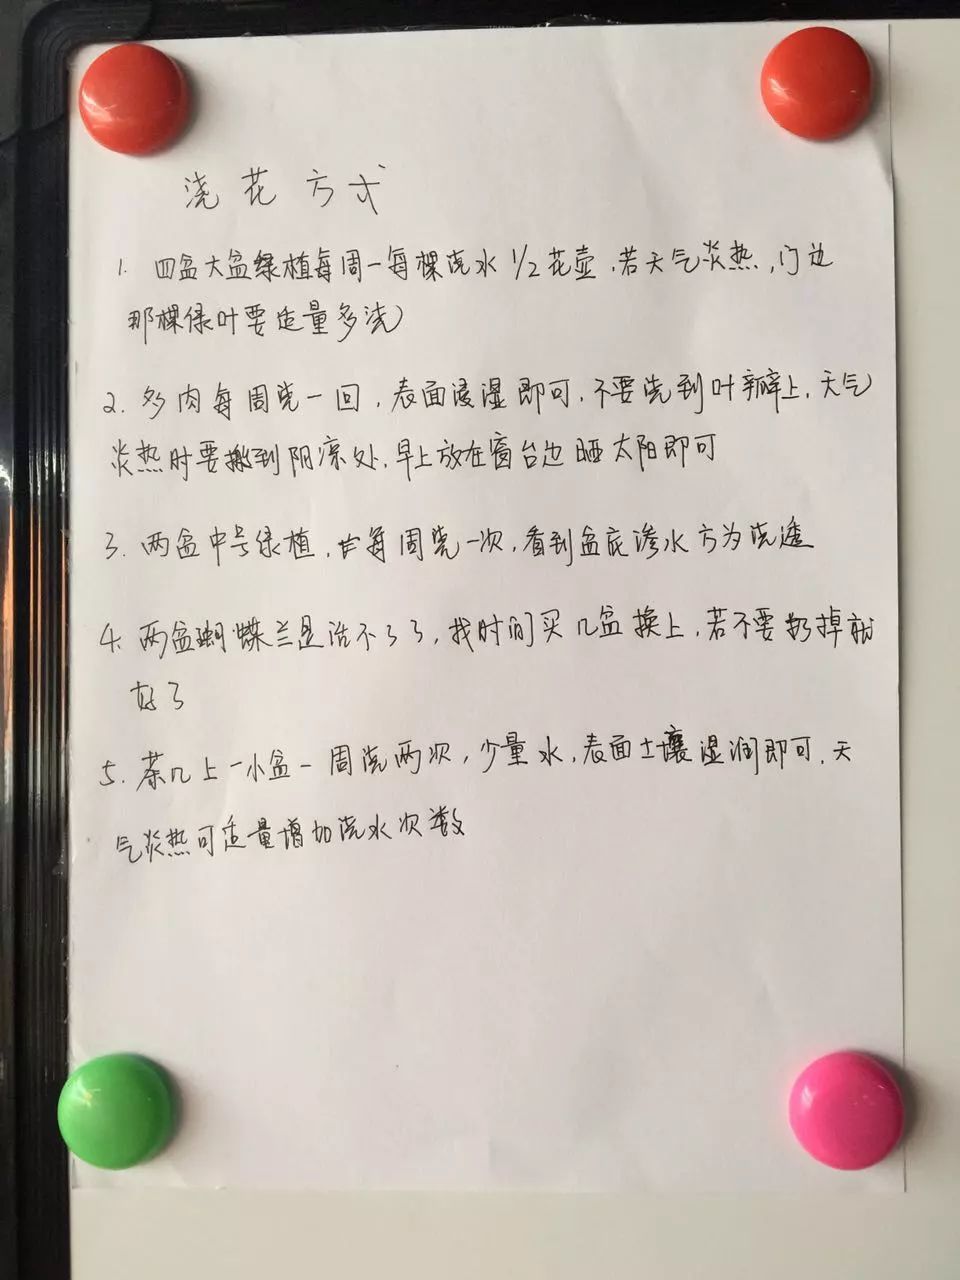 浇花方式
1. 四盆大盆绿植每周一每棵浇水1/2花壶,若天气炎热,门边
那棵绿叶要适量多浇)
2. 多肉每周浇一回,表面浸湿即可,不要浇到叶瓣上,天气
炎热时要搬到阴凉处,早上放在窗台边晒太阳即可
3. 两盆中号绿植,每周浇一次,看到盆底渗水方为浇透
4. 两盆蝴蝶兰是活不了了,找时间买几盆换上,若不要扔掉就
好了
5. 茶几上一小盆一周浇两次,少量水,表面土壤湿润即可,天
气炎热可适量增加浇水次数